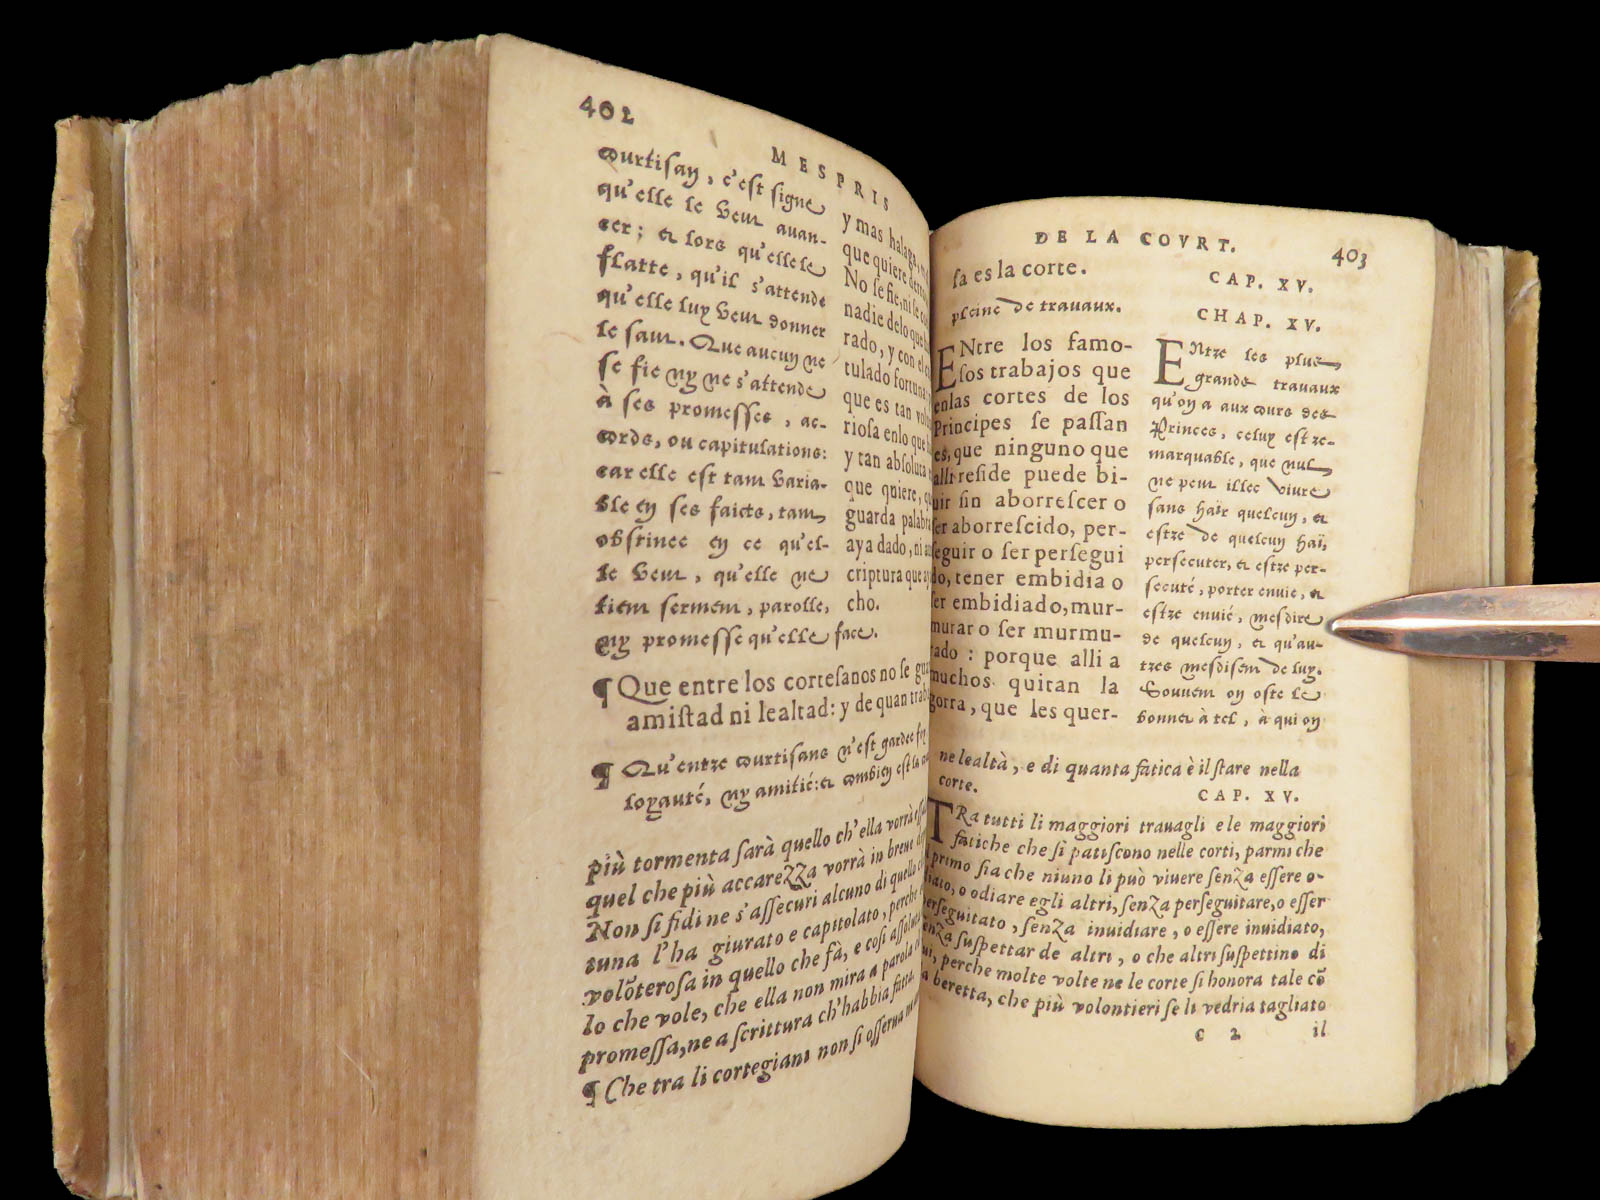 402
MESPRIS
courtisan, c'est signe
qu'elle le veut auan-
cer; & lors qu'elle le
flatte, qu'il s'attende
qu'elle luy veut donner
le saut. Que aucun ne
se fie ny ne s'attende
à ses promesses, ac-
cords, ou capitulations:
car elle est tant varia-
ble en ses faicts, tant
obstinee en ce qu'el-
le veut, qu'elle ne
tient serment, parolle,
ny promesse qu'elle face.
y mas halaga,
que quiere
No se fie, ni se
nadie delo que
rado, y con el
tulado fortuna
que es tan
riosa enlo que
y tan absoluta
que quiere,
guarda palabra
aya dado, ni
criptura que
cho.
¶ Que entre los cortesanos no se
amistad ni lealtad: y de quan
¶ Qu'entre courtisans n'est gardee foy
loyauté, ny amitié: & combien est la
più tormenta sarà quello ch'ella vorrà
quel che più accarezza vorrà in breue
Non si fidi ne s'assecuri alcuno di quello
tuna l'ha giurato e capitolato, perche
volōterosa in quello che fà, e così assoluta
lo che vole, che ella non mira a parola
promessa, ne a scrittura ch'habbia fatta.
¶ Che tra li cortegiani non si osserua
DE LA COVRT.
403
sa es la corte.
CAP. XV.
pleine de trauaux.
CHAP. XV.
ENtre los famo-
sos trabajos que
enlas cortes de los
Principes se passan
es, que ninguno que
alli reside puede bi-
uir sin aborrescer o
ser aborrescido, per-
seguir o ser persegui
do, tener embidia o
ser embidiado, mur-
murar o ser murmu-
rado : porque alli a
muchos quitan la
gorra, que les quer-
ENtre les plus
grands trauaux
qu'on a aux cours des
Princes, celuy est re-
marquable, que nul
ne peut illec viure
sans haïr quelcun, &
estre de quelcun haï,
persecuter, & estre per-
secuté, porter enuie, &
estre enuié, mesdire
de quelcun, & qu'au-
tres mesdisent de luy.
Souuent on oste le
bonnet à tel, à qui on
ne lealtà, e di quanta fatica è il stare nella
corte.
CAP. XV.
TRa tutti li maggiori trauagli e le maggiori
fatiche che si patiscono nelle corti, parmi che
il primo sia che niuno li può viuere senza essere o-
diato, o odiare egli altri, senza perseguitare, o esser
perseguitato, senza inuidiare, o essere inuidiato,
senza suspettar de altri, o che altri suspettino di
lui, perche molte volte ne le corte si honora tale cō
la beretta, che più volontieri se li vedria tagliato
c 2
il